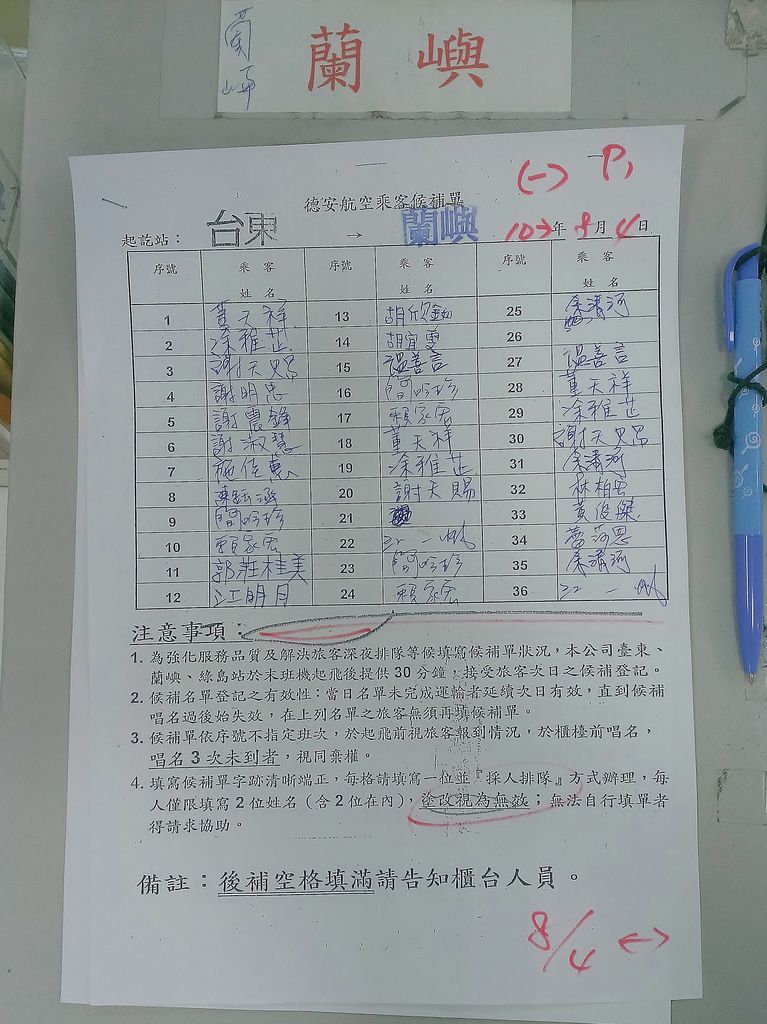 蘭嶼
蘭 嶼
(一) P1
德安航空乘客候補單
起訖站： 台東 → 蘭嶼 107年 8月 4日
序號 乘客姓名 序號 乘客姓名 序號 乘客姓名
1 董天祥 13 胡欣 25 余清河
2 涂雅芷 14 胡宜雯 26
3 謝天賜 15 溫善言 27 溫善言
4 謝明忠 16 簡吟珍 28 董天祥
5 謝震鋒 17 賴家宏 29 涂雅芷
6 謝淑慧 18 董天祥 30 謝天賜
7 施佳惠 19 涂雅芷 31 余清河
8 20 謝天賜 32 林柏宏
9 簡吟珍 21 33 黃俊傑
10 賴家宏 22 江一帆 34
11 郭莊桂美 23 簡吟珍 35 余清河
12 江明月 24 賴家宏 36 江一帆
注意事項：
1. 為強化服務品質及解決旅客深夜排隊等候填寫候補單狀況，本公司臺東、
蘭嶼、綠島站於末班機起飛後提供 30 分鐘，接受旅客次日之候補登記。
2. 候補名單登記之有效性：當日名單未完成運輸者延續次日有效，直到候補
唱名過後始失效，在上列名單之旅客無須再填候補單。
3. 候補單依序號不指定班次，於起飛前視旅客報到情況，於櫃檯前唱名，
唱名 3 次未到者，視同棄權。
4. 填寫候補單字跡清晰端正，每格請填寫一位並『採人排隊』方式辦理，每
人僅限填寫 2 位姓名（含 2 位在內），塗改視為無效；無法自行填單者
得請求協助。
備註：後補空格填滿請告知櫃台人員。
8/4 (一)